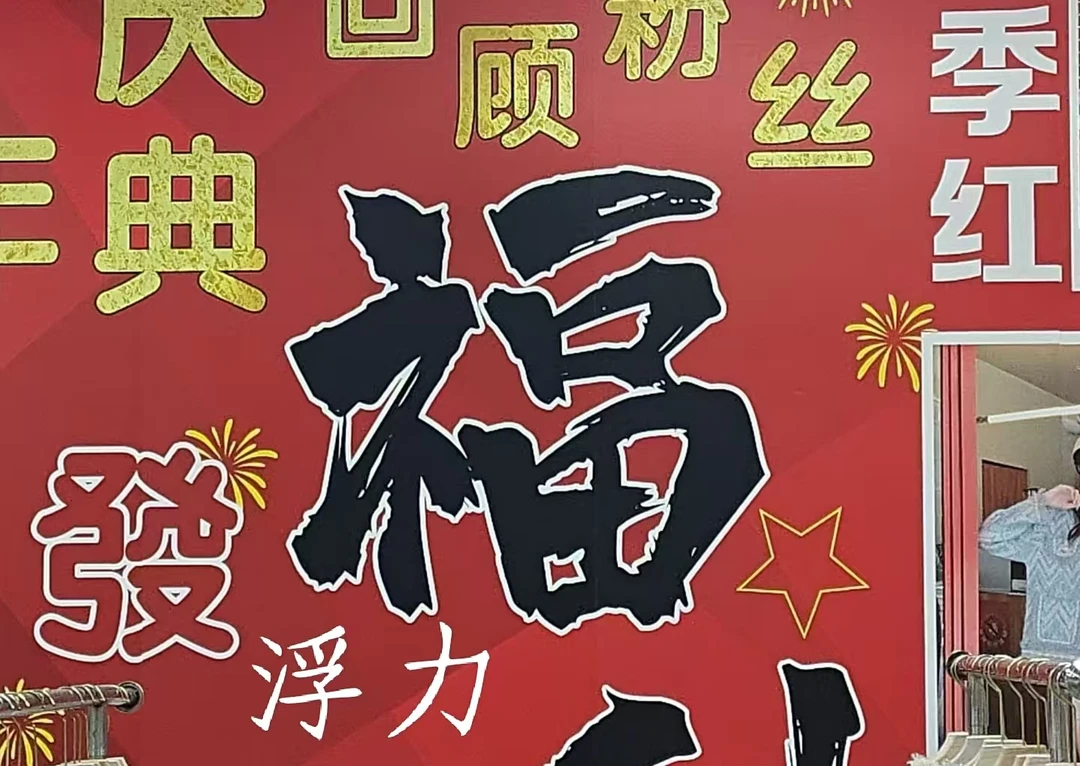 庆回顾粉丝
年典
季红
福
發
浮力